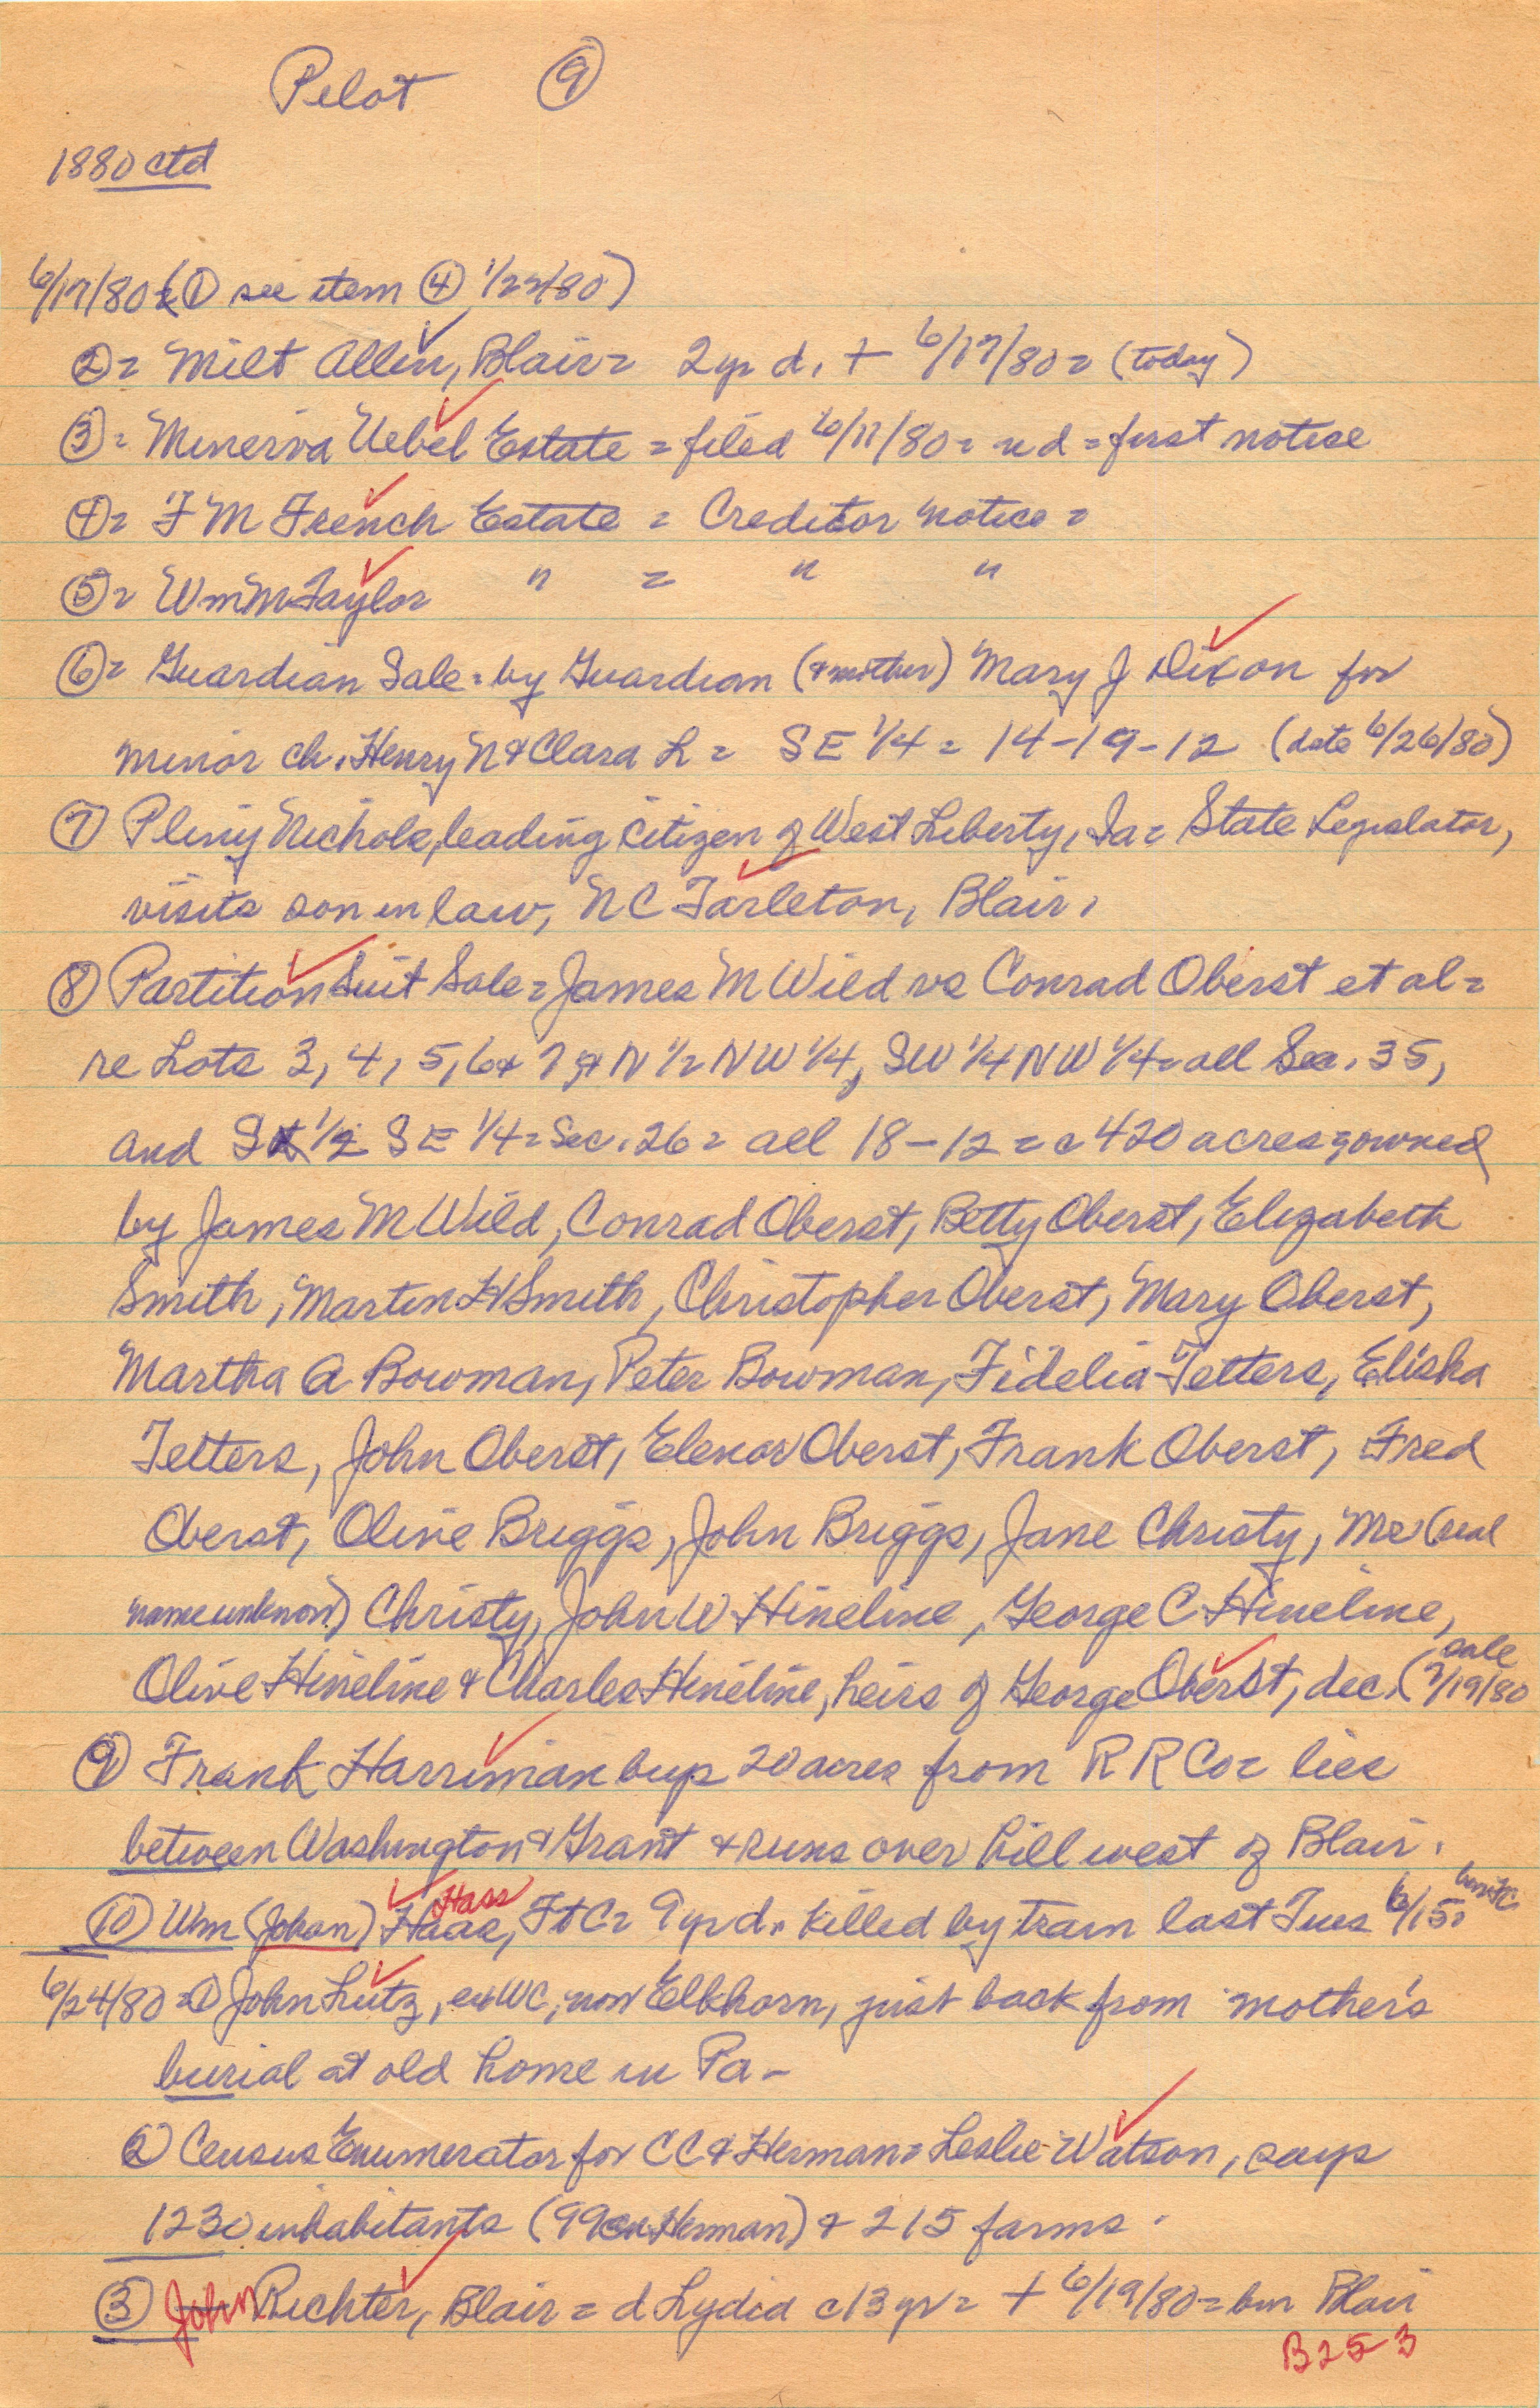 Pilot ⑨
1880 ctd
6/17/80 (① see item ④ 1/22/80)
②= Milt Allen, Blair= 2 yr d. + 6/17/80= (today)
③= Minerva Uebel Estate = filed 6/11/80= nd = first notice
④= F M French Estate = Creditor notice =
⑤= Wm M Taylor " = " "
⑥= Guardian Sale= by Guardian (& mother) Mary J Dixon for
minor ch. Henry N & Clara L = SE 1/4 = 14-19-12 (date 6/26/80)
⑦ Pliny Nichols, leading citizen of West Liberty, Ia= State Legislator,
visits son in law, NC Tarleton, Blair.
⑧ Partition Suit Sale= James M Wild vs Conrad Oberst et al=
re Lots 3, 4, 5, 6 & 7 & N 1/2 NW 1/4, SW 1/4 NW 1/4= all Sec. 35,
and S 1/2 SE 1/4= Sec. 26= all 18-12 = c 420 acres= owned
by James M Wild, Conrad Oberst, Betty Oberst, Elizabeth
Smith, Martin H Smith, Christopher Oberst, Mary Oberst,
Martha A Bowman, Peter Bowman, Fidelia Tetters, Elisha
Tetters, John Oberst, Elenor Oberst, Frank Oberst, Fred
Oberst, Olive Briggs, John Briggs, Jane Christy, Mr (real
name unknown) Christy, John W Hineline, George C Hineline,
Olive Hineline & Charles Hineline, heirs of George Oberst, dec. (sale 7/19/80
⑨ Frank Harriman buys 20 acres from R R Co= lies
between Washington & Grant & runs over hill west of Blair.
⑩ Wm (Johan) Haas, Hass FtC= 9 yr d. killed by train last Tues 6/15=
6/24/80 =① John Lutz, ex WC, now Elkhorn, just back from mother's
burial at old home in Pa-
② Census Enumerator for CC & Herman= Leslie Watson, says
1230 inhabitants (99 in Herman) & 215 farms.
③ John Richter, Blair = d Lydia c13 yr = + 6/19/80= bur Blair
B253